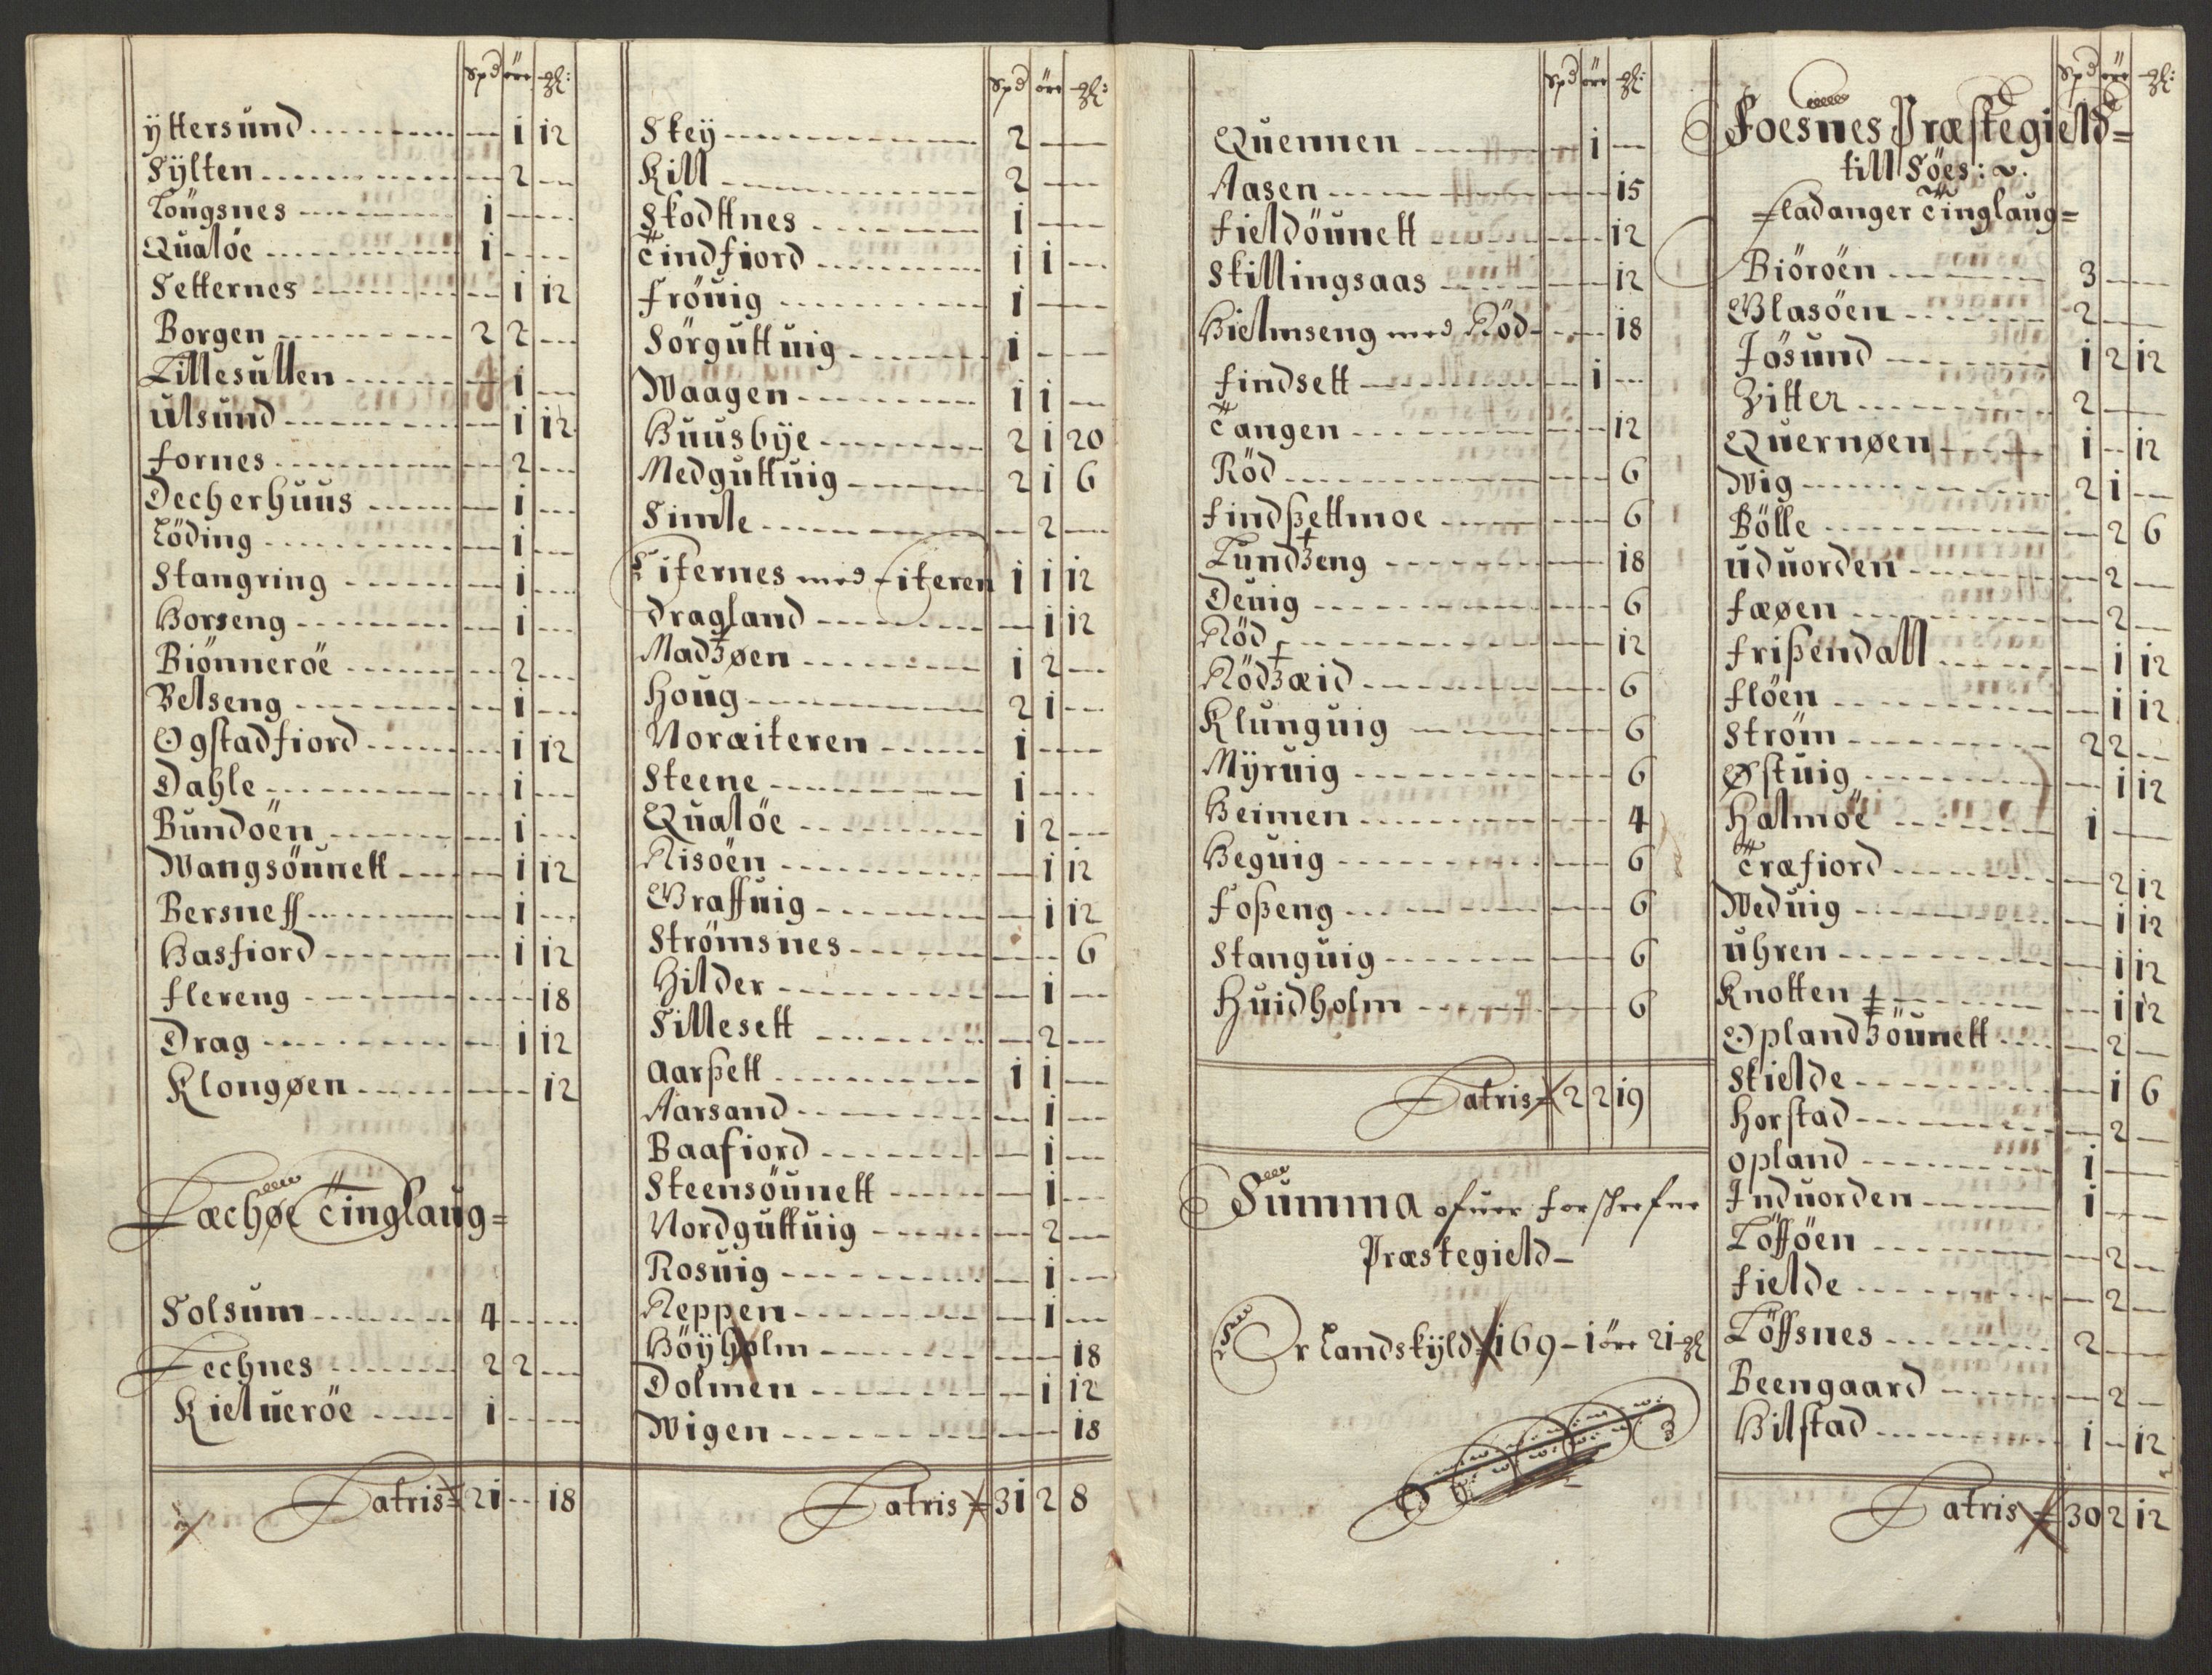 Spd öre gl:
Ÿttersund - 1 12
Sÿlten - 2 -
Lougsnes 1 - -
Qualöe 1 - -
Setternes - 1 12
Borgen 2 2 -
Lillesullen - 1 -
Ulsund - 1 12
Fornes - 2 -
Decherhuus - 1 -
Löding - 1 -
Stangring - 1 -
Horseng - 1 -
Biönneröe - 2 -
Belseng - 1 -
Ogstadfiord - 1 12
Dahle - 1 -
Bundöen - 1 -
Wangsöunett - 1 12
Bersneff - 1 -
Hasfiord - 1 12
Flereng - - 18
Drag - 1 12
Klongøen - - 12
Læchøe Tinglaug=
Solsum 4 - -
Lechnes 2 2 -
Kielueröe 1 - -
Latris 21 - 18
Spd öre gl:
Skeÿ 2 - -
Kill 2 - -
Skodtnes 1 - -
Tindfiord 1 1 -
Fröuig 1 - -
Sörguttuig 1 - -
Waagen 1 1 -
Huusbÿe 2 1 20
Medguttuig 2 1 6
Simle - 2 -
Eiternes med Eiteren 1 1 12
Dragland - 1 12
Madzøen 1 2 -
Houg 2 1 -
Noræiteren 1 - -
Steene 1 - -
Qualöe 1 2 -
Risöen - 1 12
Graffuig - 1 12
Strömsnes - - 6
Hilder - 1 -
Sillesett - 2 -
Aarßett 1 1 -
Aarsand - 1 -
Baafiord - 1 -
Steensöunett - 1 -
Nordguttuig - 2 -
Rosuig - 1 -
Reppen - 1 -
Höÿholm - - 18
Dolmen - 1 12
Wigen - - 18
Latris 31 2 8
Spd öre gl:
Quennen - 1 -
Aasen - - 15
Fieldöunett - - 12
Skillingsaas - - 12
Hielmseng med Röd - - 18
Findsett - 1 -
Tangen - - 12
Röd - - 6
Findßettmoe - - 6
Lundzeng - - 18
Deuig - - 6
Röd - - 12
Rödzæid - - 6
Klunguig - - 6
Mÿruig - - 6
Heimen - - 4
Heguig - - 6
Foßeng - - 6
Stanguig - - 6
Huidholm - - 6
Latris 2 2 19
Summa ofuer forschrefne
Præstegield
Er Landskÿld 169 - 1 öre 21 gl
Spd öre gl:
Foesnes Præstegield=
till Söes: v.
Fladanger Tinglaug=
Biöröen 3 - -
Glasöen 2 - -
Jösund 1 2 12
Zitter 2 - -
Quernøen 1 - 12
Wig 2 1 -
Bölle - 2 6
Uduorden - 2 -
Fæøen - 2 -
Frißendall - 1 12
Flöen - 1 12
Ström 2 2 -
Østuig - 1 12
Halmöe 1 - -
Træfiord - 2 12
Weduig - 1 12
Uhren - 1 12
Knotten - 1 12
Oplandzöunett - 2 -
Skielde - 1 6
Horstad - 2 -
Opland 1 - -
Induorden 1 - -
Löfföen - 2 -
Fielde - 2 -
Löffsnes 2 - -
Beengaard - 2 -
Hilstad 1 - 12
Latris 30 2 12